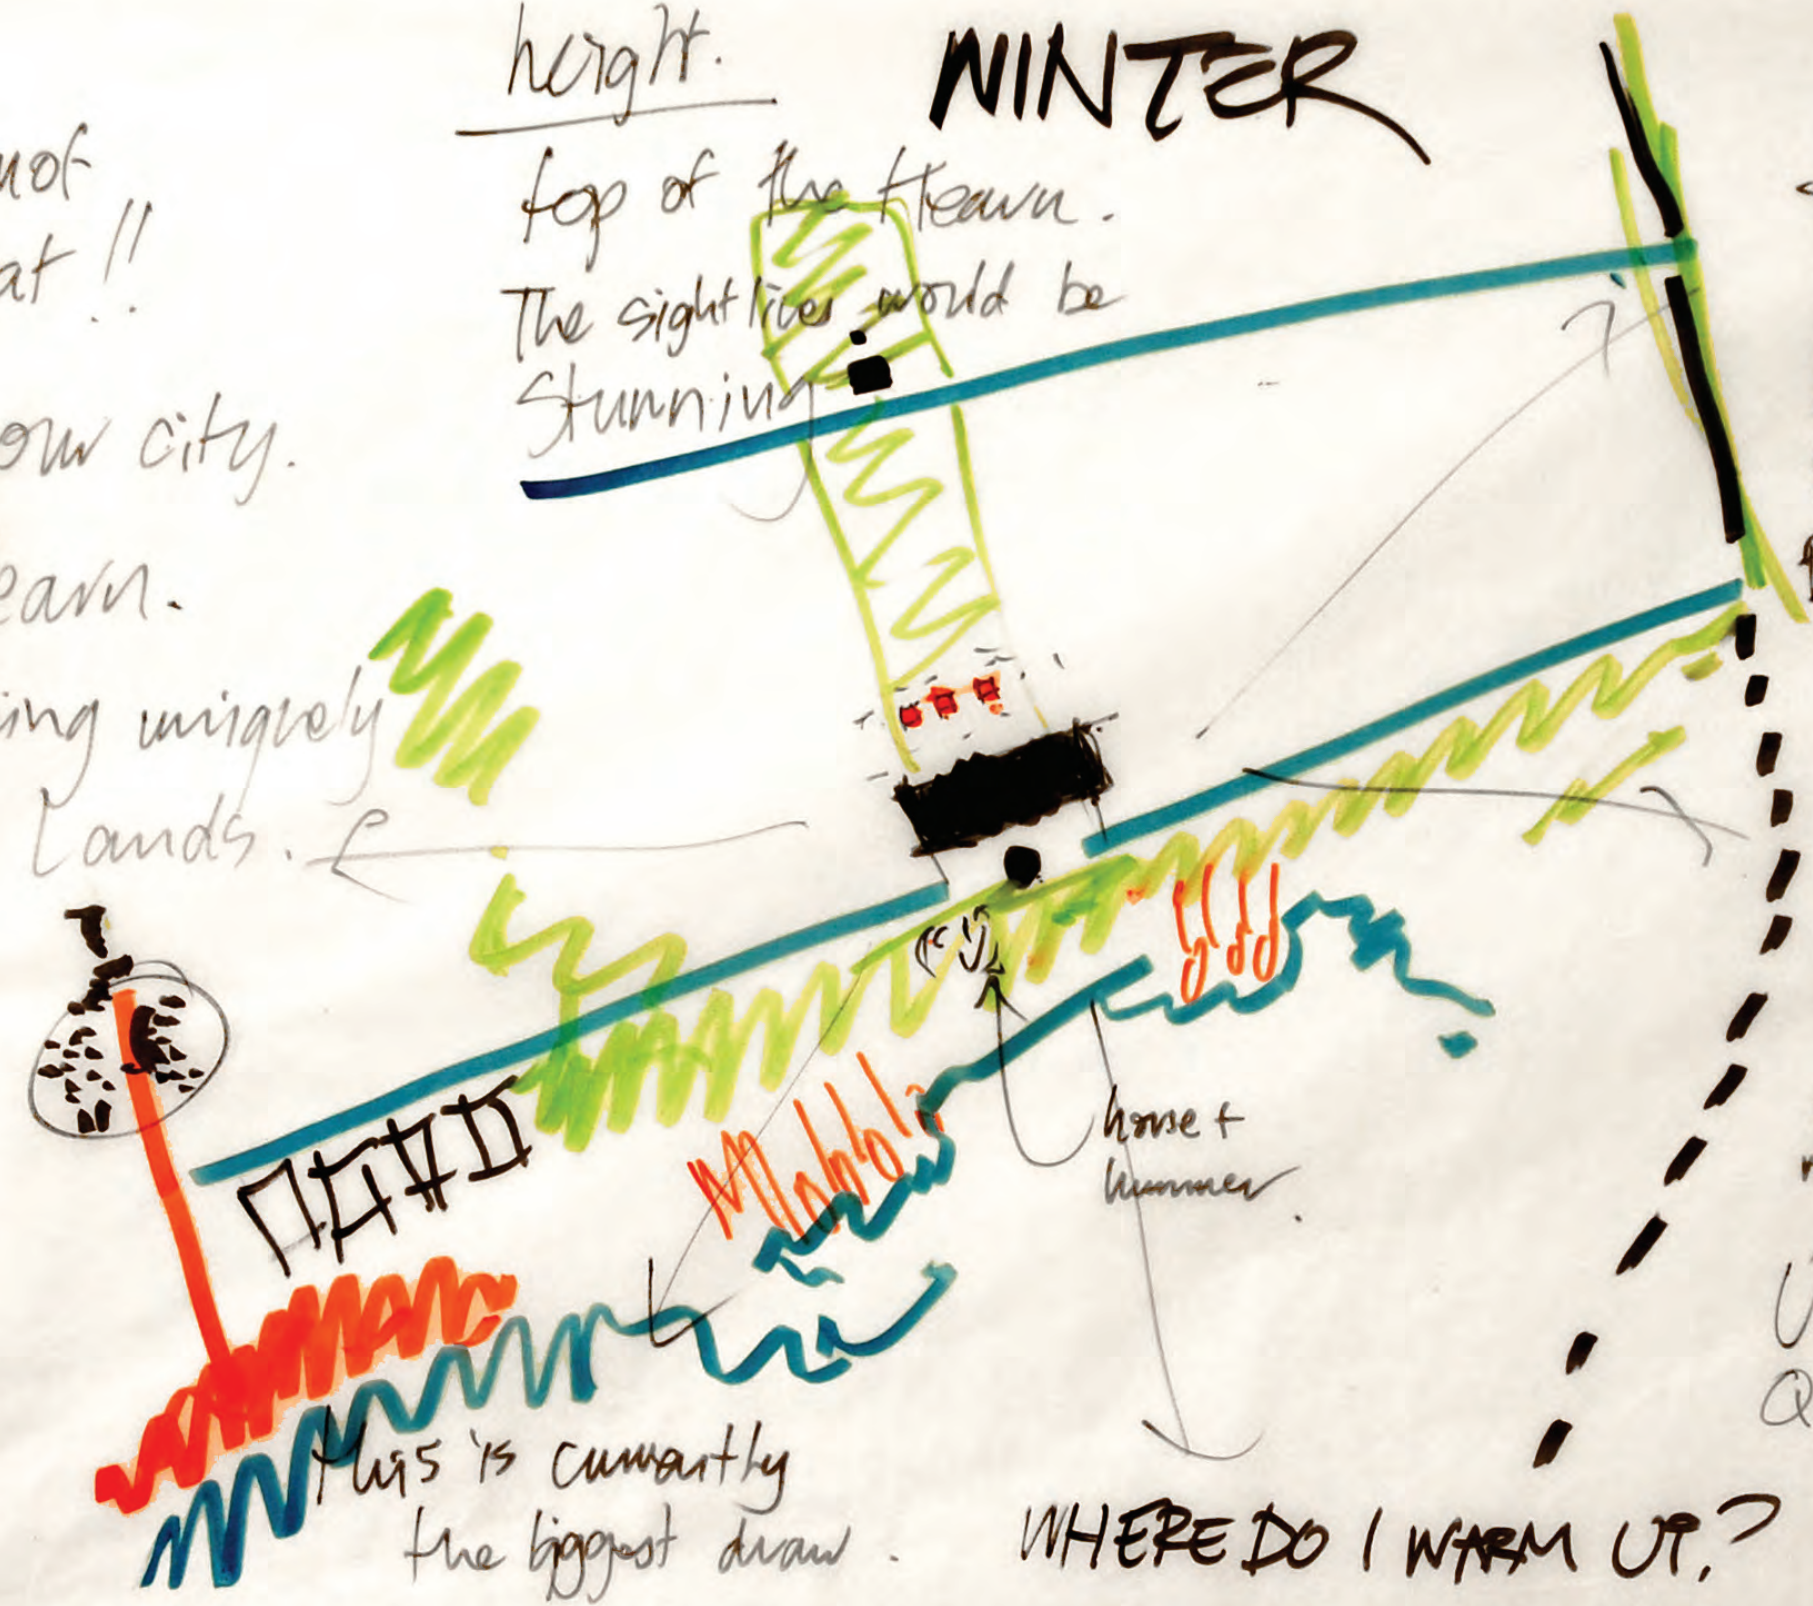 height.
WINTER
top of the Hearn.
The sightlines would be
Stunning
not
at !!
our city.
earn.
ing uniquely
Lands.
horse +
hummer
this is currently
the biggest draw.
WHERE DO I WARM UP?